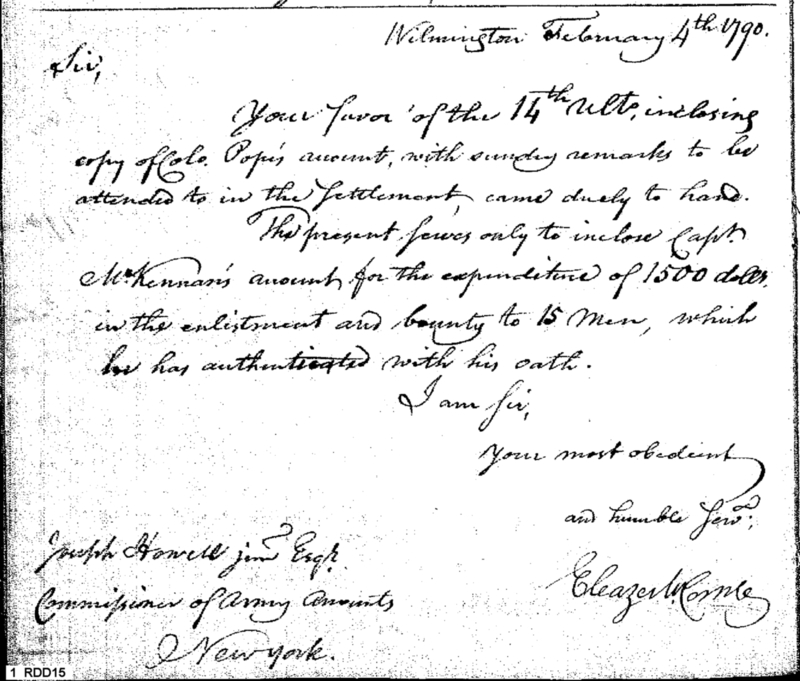 Wilmington February 4th 1790.
Sir,
Your favor of the 14th Ulto, inclosing
copy of Colo. Pope's account, with sundry remarks to be
attended to in the Settlement, came duely to hand.
The present serves only to inclose Capt.
McKennan's account for the expenditure of 1500 dolls.
in the enlistment and bounty to 15 Men, which
he has authenticated with his oath.
I am Sir,
Your most obedient
and humble Servt.,
Eleazer McComb
Joseph Howell junr. Esqr.
Commissioner of Army Accounts
New York.
1 RDD15